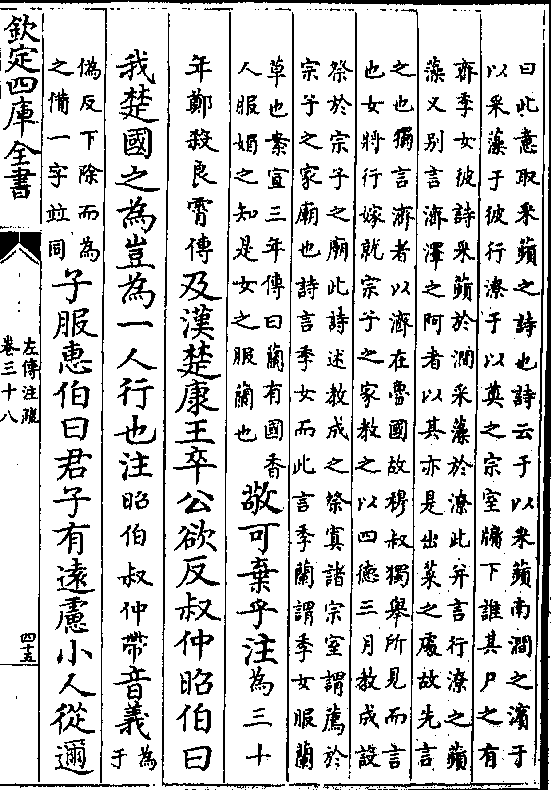 曰此意取采蘋之詩也詩云于以采蘋南澗之濱于
以采藻于彼行潦于以奠之宗室牖下誰其尸之有
齊季女彼詩采蘋於澗采藻於潦此并言行潦之蘋
藻又别言濟澤之阿者以其亦是出菜之處故先言
之也獨言濟者以濟在魯國故穆叔獨舉所見而言
也女將行嫁就宗子之家教之以四德三月教成設
祭於宗子之廟此詩述教成之祭寘諸宗室謂薦於
宗子之家廟也詩言季女而此言季蘭謂季女服蘭
草也案宣三年傳曰蘭有國香
人服媚之知是女之服蘭也
敬可棄乎注為三十
年鄭殺良霄傳及漢楚康王卒公欲反叔仲昭伯曰
我楚國之為豈為一人行也注昭伯叔仲帶音義為
于
偽反下除而為
之備一字竝同
子服惠伯曰君子有遠慮小人從邇
欽定四庫全書
左傳注疏
卷三十八
四十五